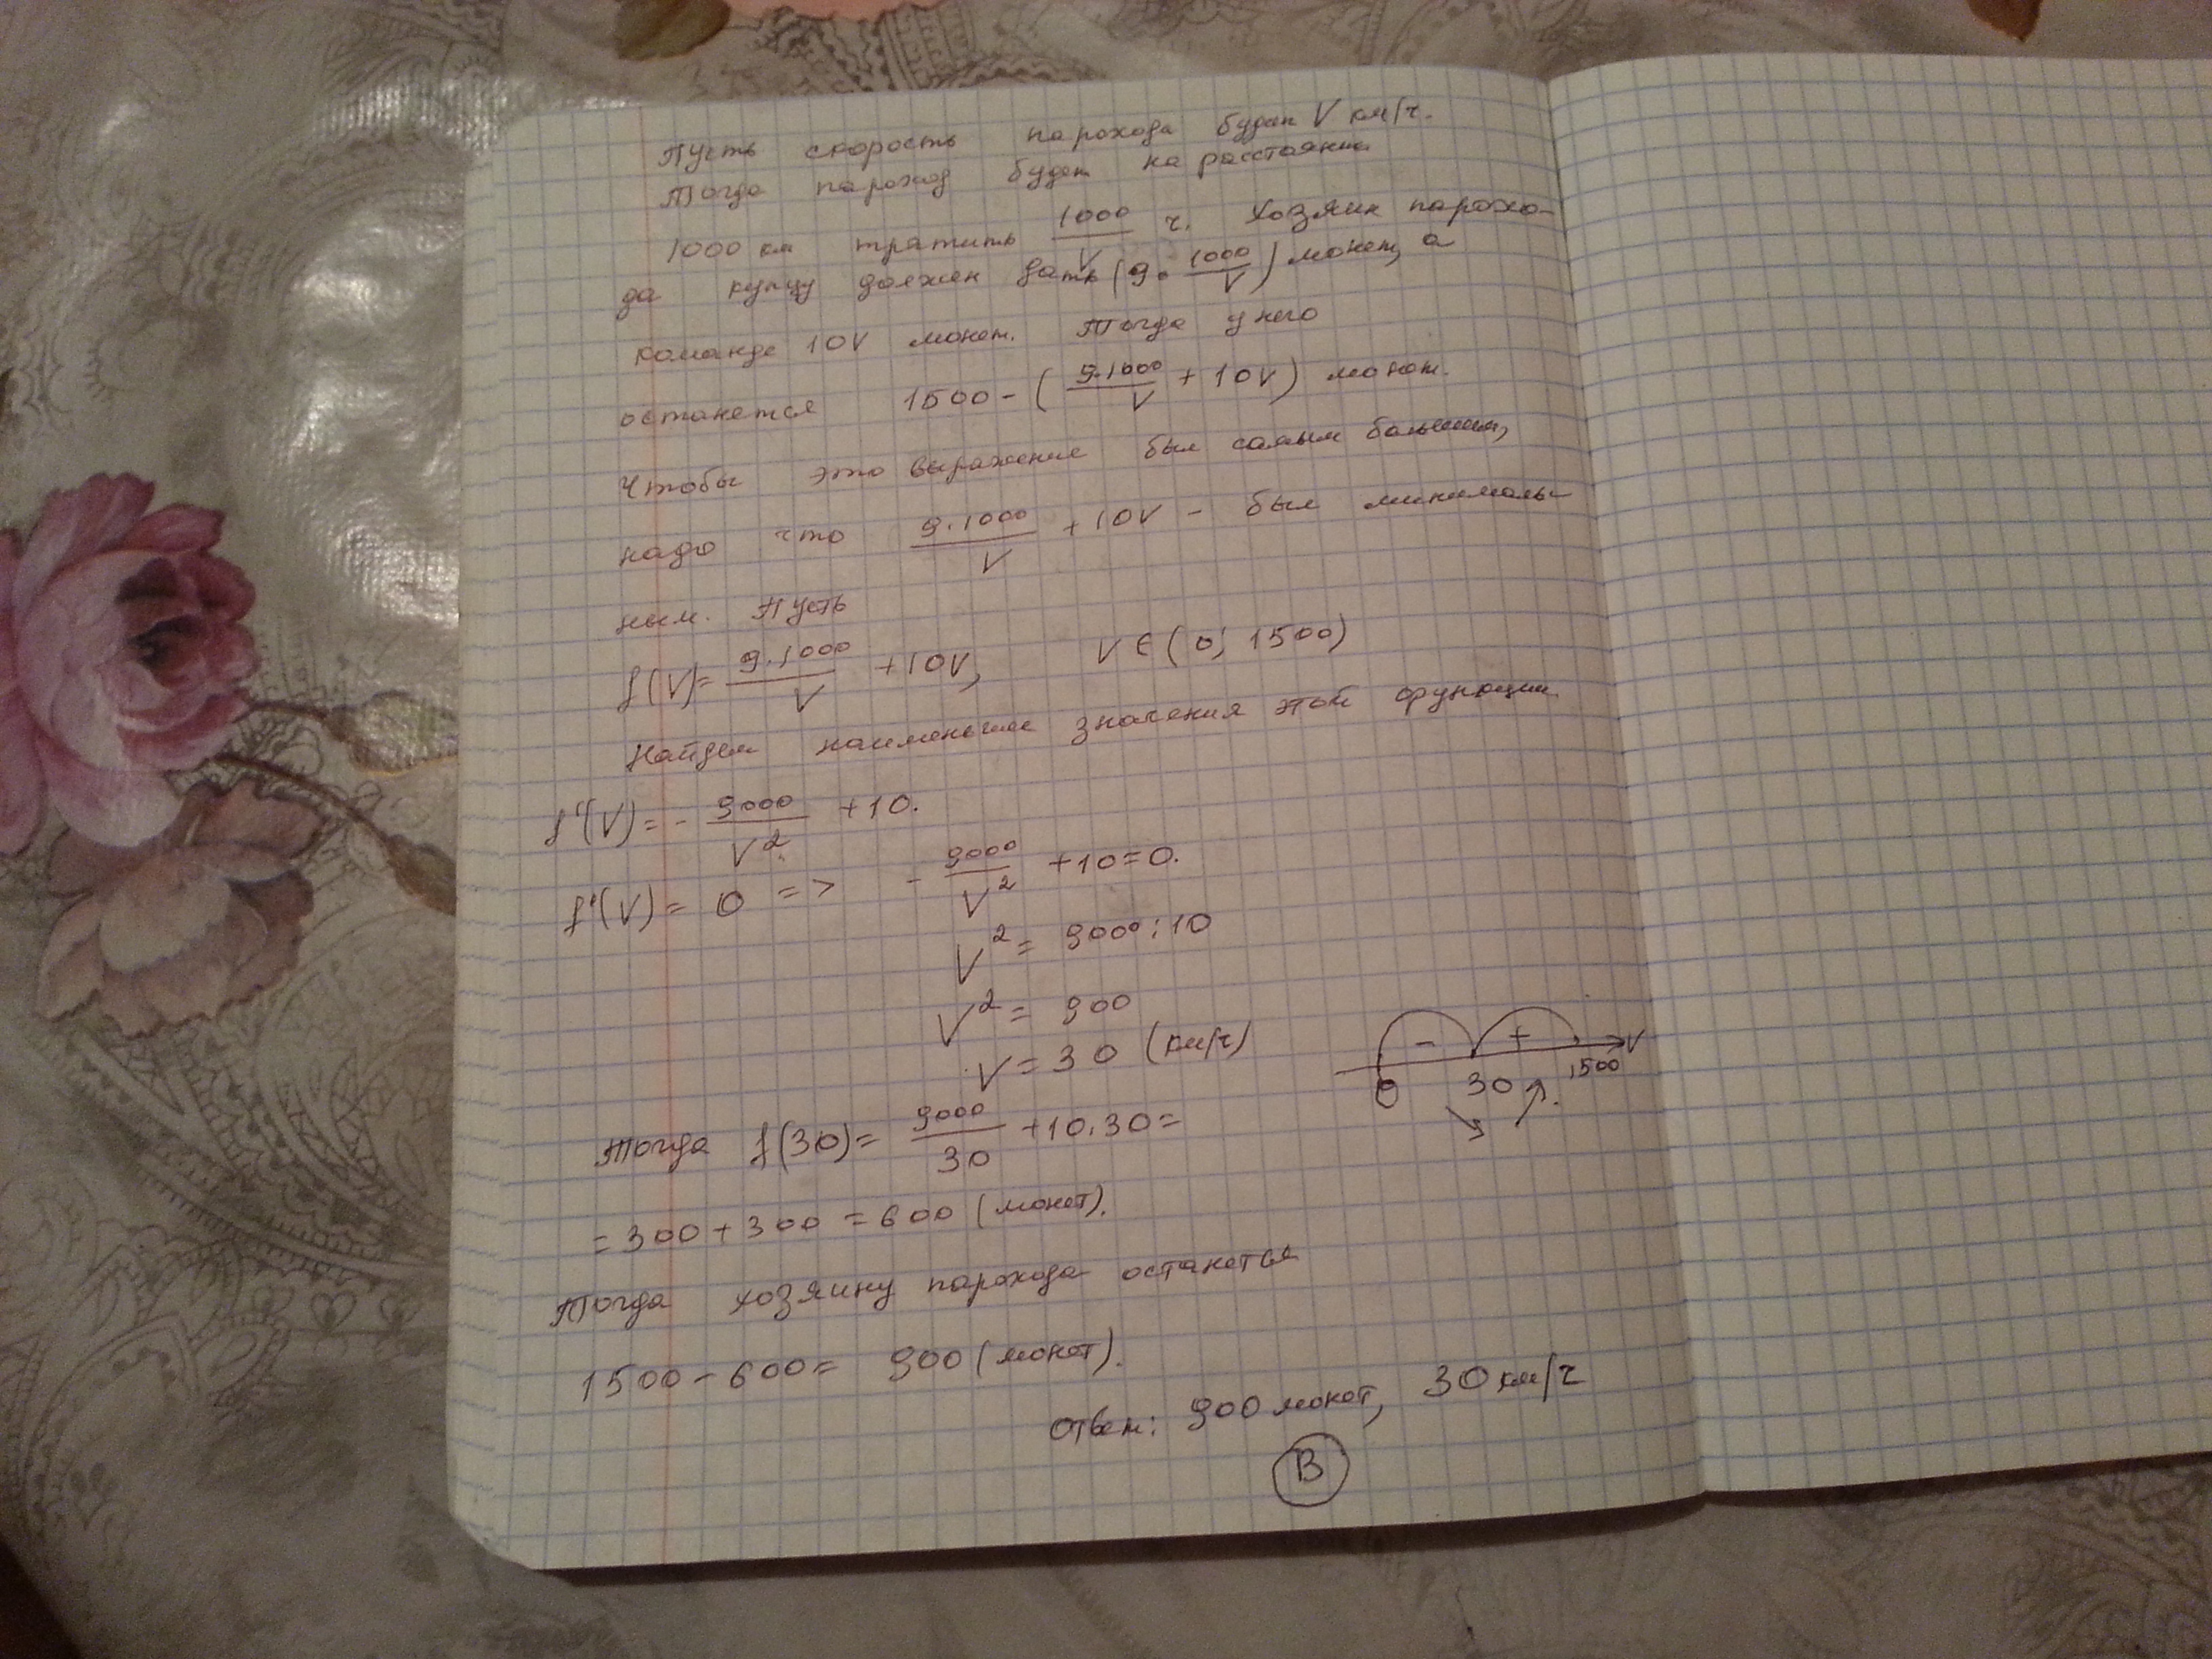 Пусть скорость парохода будет V км/ч.
Тогда пароход будет на расстоянии
1000 км тратить 1000/V ч. Хозяин парохо-
да купцу должен дать (9·1000/V) монет, а
команде 10V монет. Тогда у него
останется 1500-(9·1000/V + 10V) монет.
Чтобы это выражение был самым большим,
надо что 9·1000/V + 10V - был минималь-
ным. Пусть
f(V)= 9·1000/V + 10V, V ∈ (0; 1500)
Найдем наименьшее значения этой функции.
f'(V) = - 9000/V² + 10.
f'(V) = 0 => - 9000/V² + 10 = 0.
V² = 9000:10
V² = 900
V = 30 (км/ч)
- + V
0 30 1500
Тогда f(30)= 9000/30 + 10·30 =
= 300 + 300 = 600 (монет).
Тогда хозяину парохода останется
1500 - 600 = 900 (монет).
Ответ: 900 монет, 30 км/ч
B